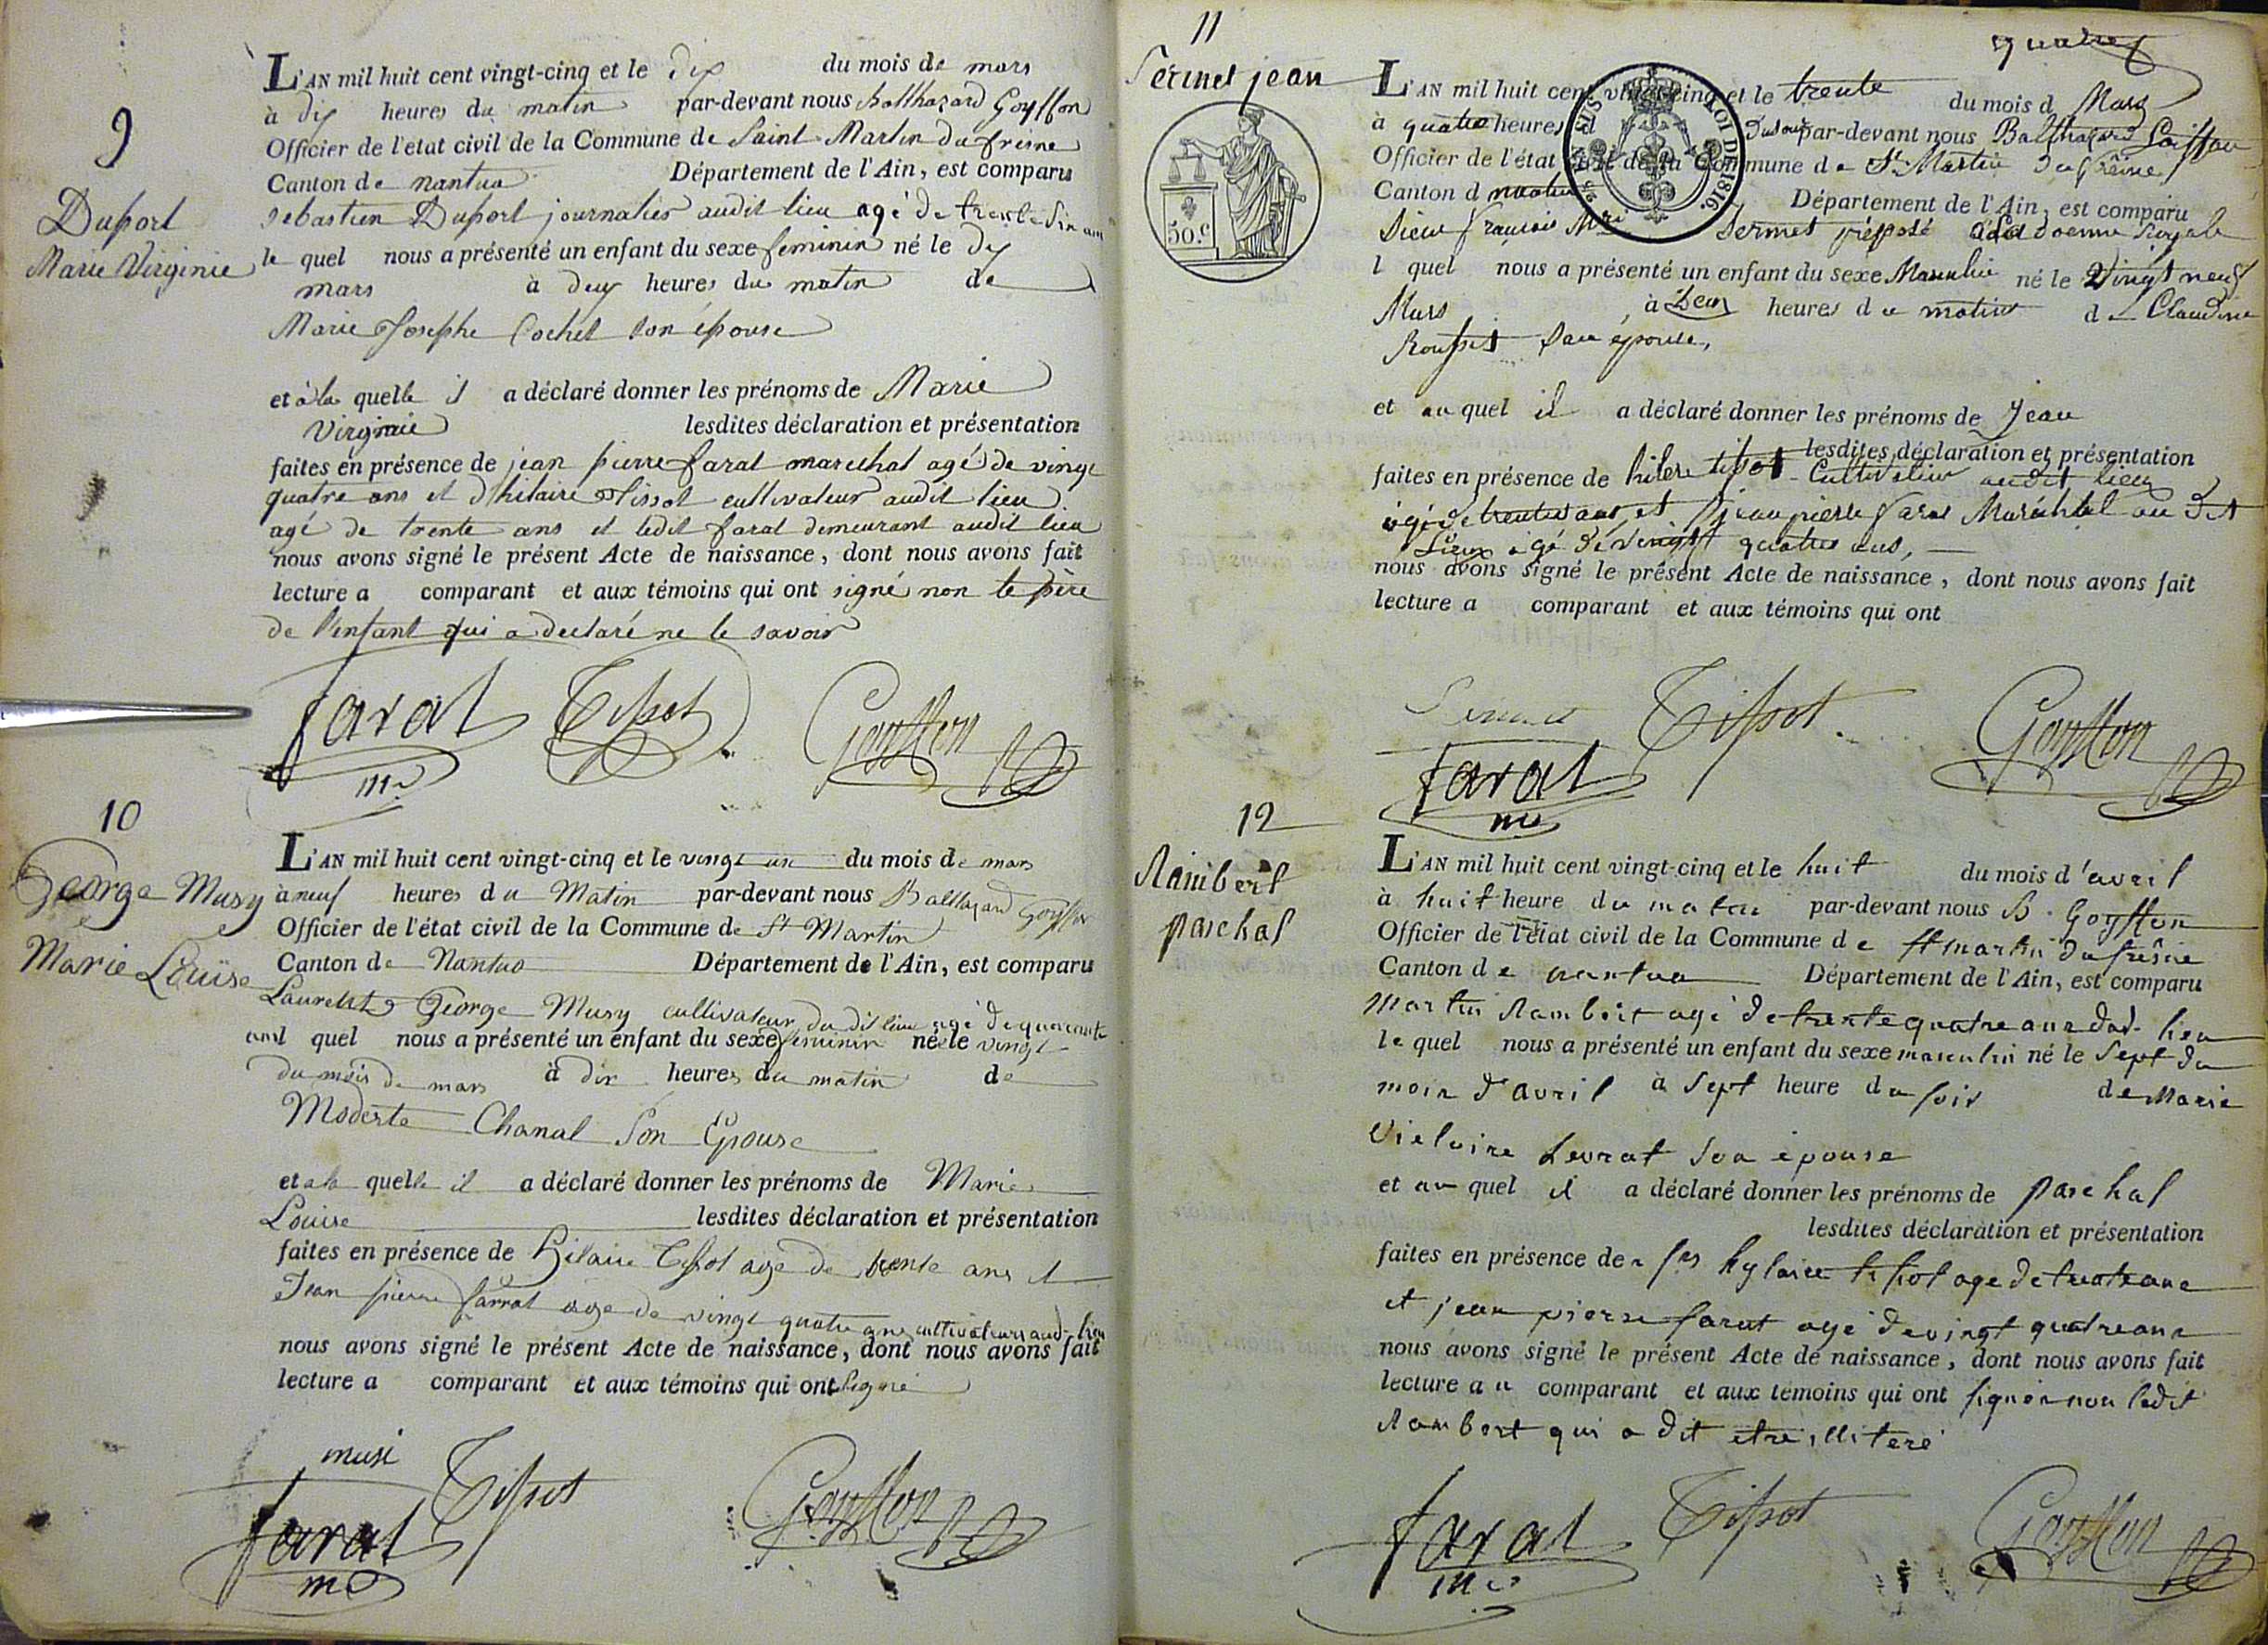 9
Duport
Marie Virginie
L'AN mil huit cent vingt-cinq et le dix du mois de mars
à dix heures du matin par-devant nous Balthazard Goyffon
Officier de l'etat civil de la Commune de Saint Martin du fresne
Canton de nantua Département de l'Ain, est comparu
sebastien Duport journalier audit lieu agé de trente six ans
le quel nous a présenté un enfant du sexe feminin né le dix
mars à deux heures du matin de
Marie Josephe Cochet son épouse
et à la quelle il a déclaré donner les prénoms de Marie
Virginie lesdites déclaration et présentation
faites en présence de jean pierre farat marechal agé de vingt
quatre ans et d'hilaire Tissot cultivateur audit lieu
agé de trente ans et ledit farat demeurant audit lieu
nous avons signé le présent Acte de naissance, dont nous avons fait
lecture a comparant et aux témoins qui ont signé non le père
de l'enfant qui a declaré ne le savoir
farat Tissot Goyffon
10
George Musy
Marie Louise
L'AN mil huit cent vingt-cinq et le vingt un du mois de mars
à neuf heures du Matin par-devant nous Balthazard Goyffon
Officier de l'état civil de la Commune de St Martin
Canton de Nantua Département de l'Ain, est comparu
Laurent George Musy cultivateur du dit lieu agé de quarante
ans l quel nous a présenté un enfant du sexe feminin né le vingt
du mois de mars à dix heures du matin de
Modeste Chanal son Epouse
et a la quelle il a déclaré donner les prénoms de Marie
Louise lesdites déclaration et présentation
faites en présence de hilaire Tissot age de trente ans et
Jean pierre farrat age de vingt quatre ans cultivateurs aud. lieu
nous avons signé le présent Acte de naissance, dont nous avons fait
lecture a comparant et aux témoins qui ont signé
musi Tissot Goyffon
farat
11
Sermet jean
50.c
ROI DE 1816.
L'AN mil huit cent vingt-cinq et le trente du mois d Mars
à quatre heures du soir par-devant nous Balthazard Goiffon
Officier de l'état civil de la Commune de St Martin du frêne
Canton d nantua Département de l'Ain, est comparu
Sieur françois Sermet préposé à la doenne Royale
l quel nous a présenté un enfant du sexe Masculin né le Vingt neuf
Mars, à Deux heures du matin de Claudine
Rousset son épouse,
et au quel il a déclaré donner les prénoms de Jean
lesdites déclaration et présentation
faites en présence de hilere tissot Cultivateur audit lieu
agé de trente ans et jean pierre farat Maréchal au dit
Lieux agé de vingt quatre ans,
nous avons signé le présent Acte de naissance, dont nous avons fait
lecture a comparant et aux témoins qui ont
Sermet Tissot Goyffon
farat
12
Rambert
paschal
L'AN mil huit cent vingt-cinq et le huit du mois d'avril
à huit heure du matin par-devant nous B. Goyffon
Officier de l'état civil de la Commune de St martin du frêsne
Canton de nantua Département de l'Ain, est comparu
Martin Rambert agé de trente quatre ans dud. lieu
le quel nous a présenté un enfant du sexe masculin né le Sept du
mois d'avril à sept heure du soir de Marie
Victoire Levrat son épouse
et au quel il a déclaré donner les prénoms de paschal
lesdites déclaration et présentation
faites en présence de hylaire tissot age de trente ans
et jean pierre farat agé de vingt quatre ans
nous avons signé le présent Acte de naissance, dont nous avons fait
lecture a u comparant et aux témoins qui ont signé non ledit
Rambert qui a dit etre illiteré
farat Tissot Goyffon